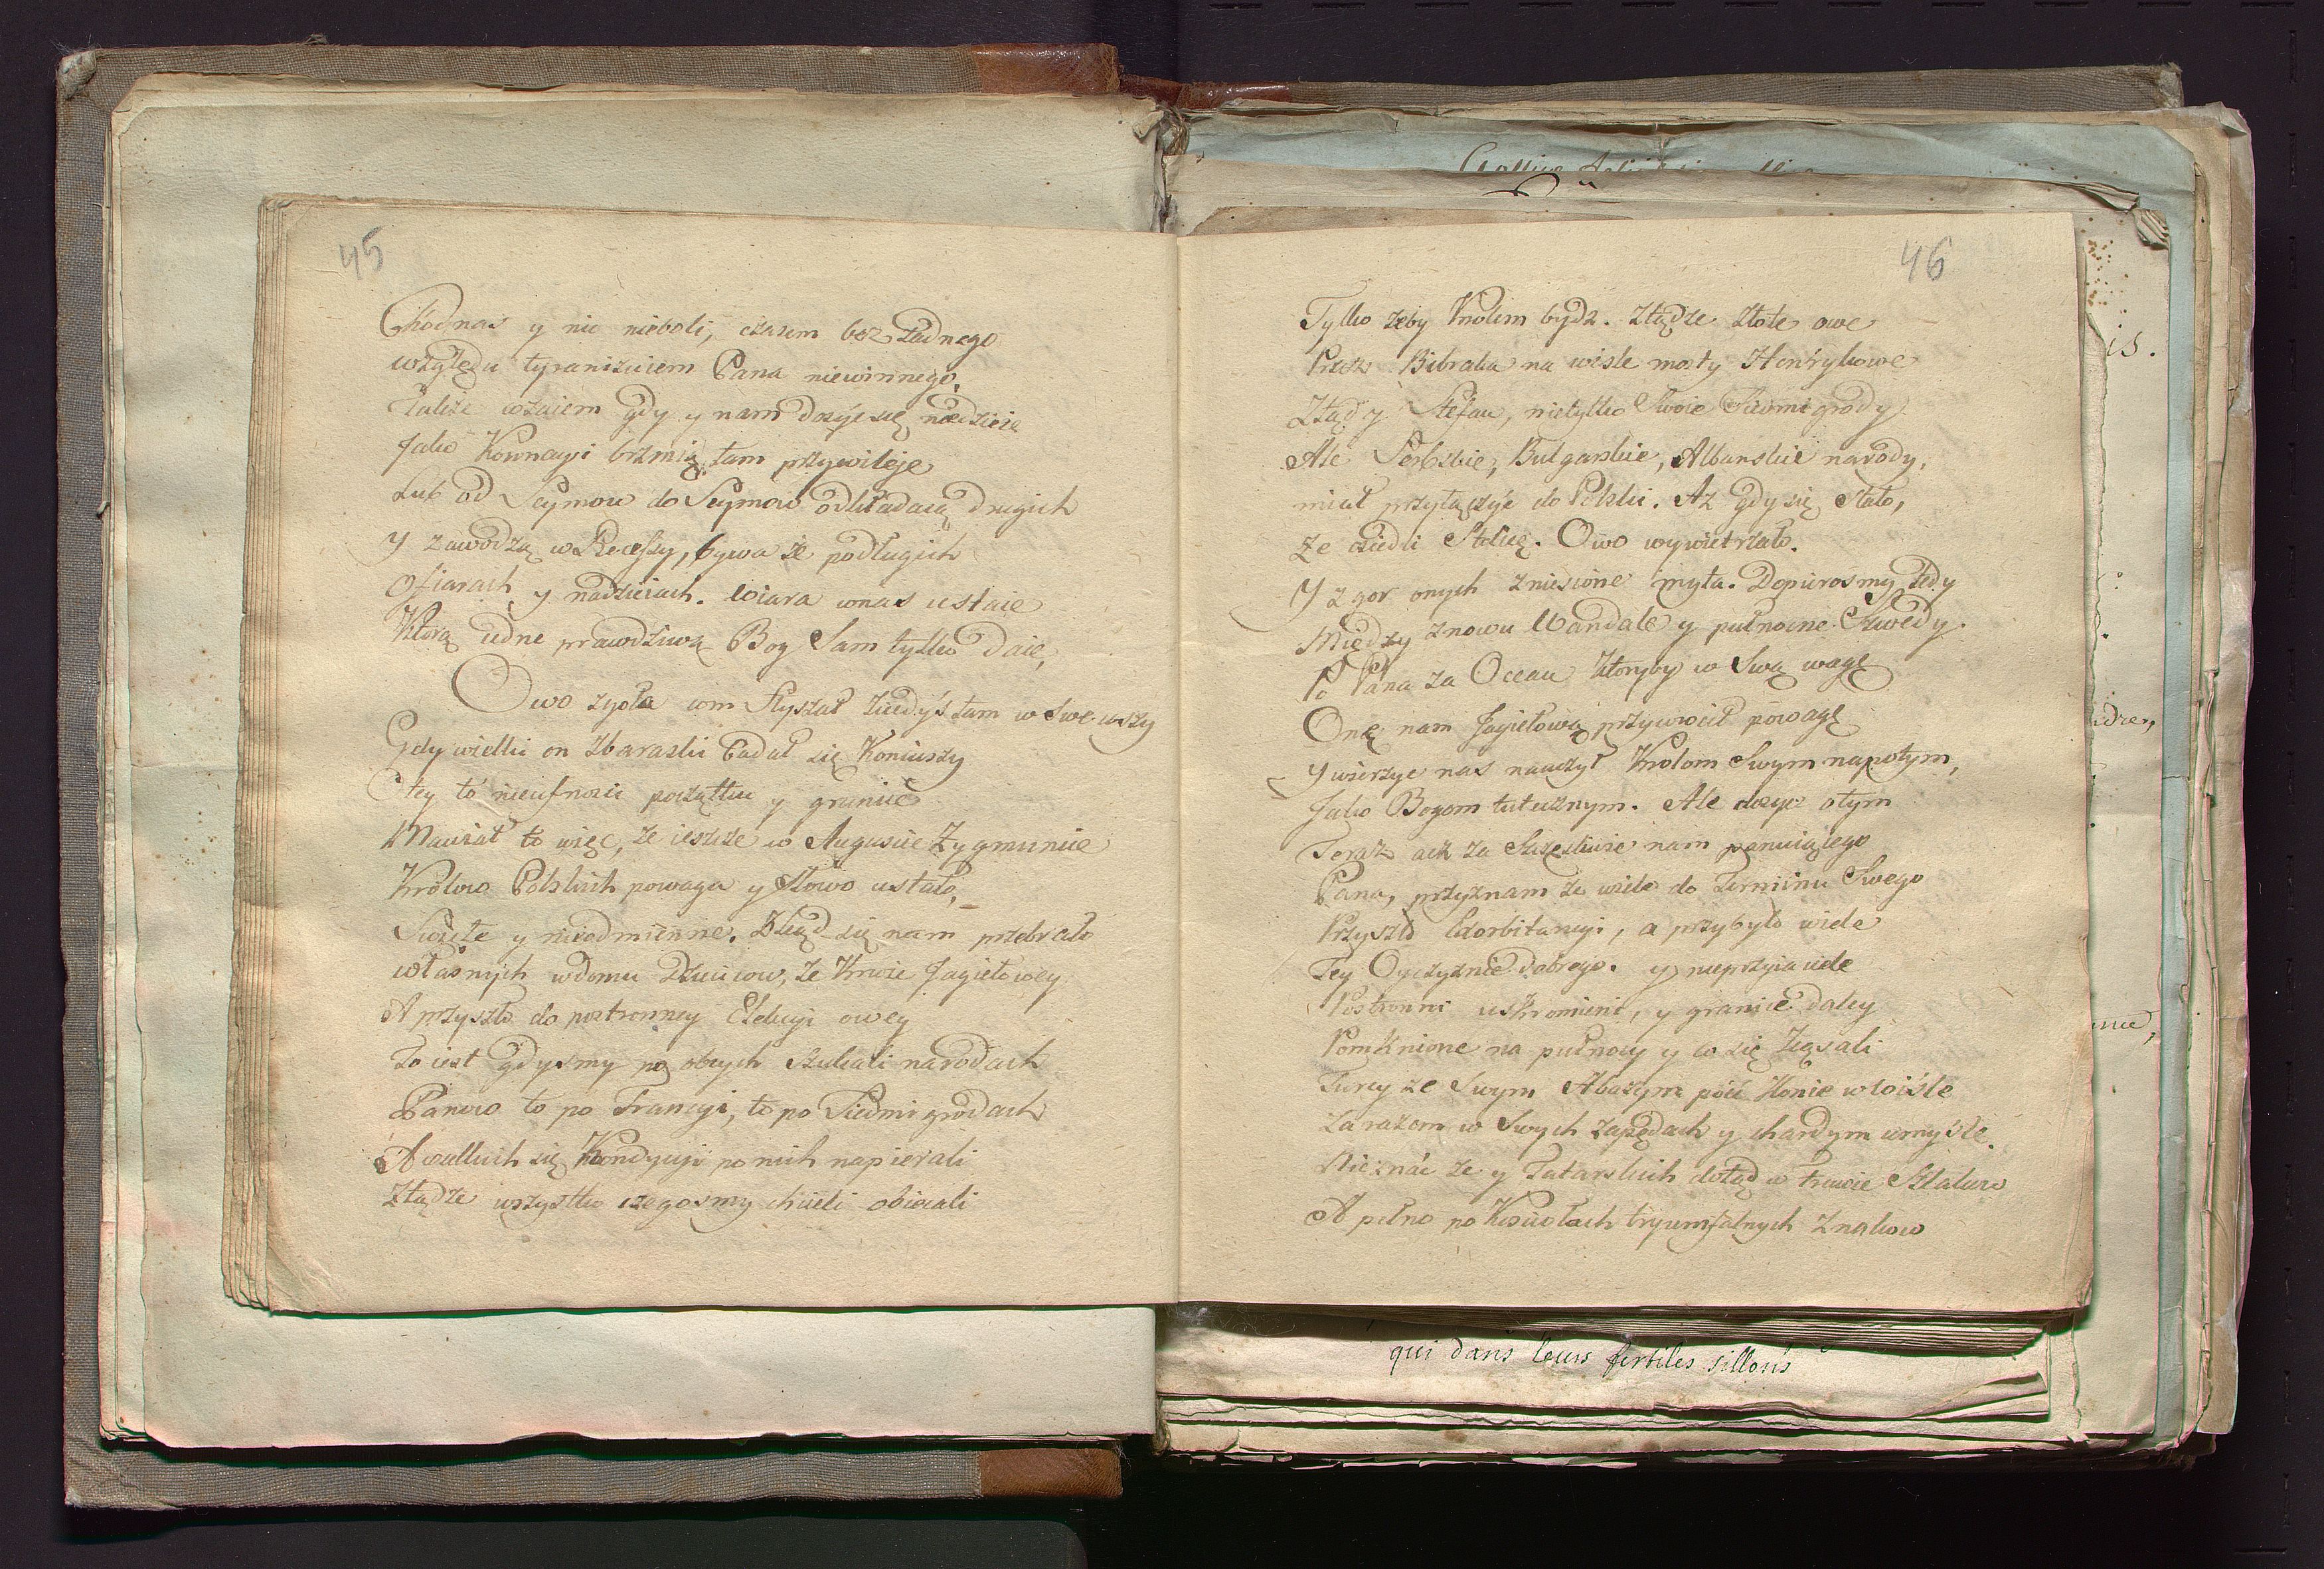 45
Chod nas y nic nieboli, czasem bez żadnego
względu tyranizuiem Pana niewinnego,
Także wzaiem gdy y nam dzieje się nadzieie
Jako brzmią tam przywileje
Lub od Seymow do Seymow odkładaią drugich
Y zawodzą w Recessy, bywa że podługich
Ofiarach y nadzieiach. Wiara wnas ustaie
Ktorą iedne prawdziwą Bog Sam tylko daie,
Owo zgoła iom Słyszał kiedyś tam w Swe uszy
Gdy wielki on Zbaraski badał się Koniuszy
tey to nieufności początku y granice
Mawiał to więc, że ieszcze w Auguście Zygmuncie
Krolow Polskich powaga y Słowo ustało,
Swięte y nieodmienne. Zkąd się nam przebrało
własnych wdomu Dziecicow, ze Krwie Jagiełowey
A przyszło do postronney Elekcyi owey
To iest gdysmy po obcych Szukali narodach
Panow to po Francyi, to po Siedmigrodach
A wielkich się Kondycyi po nich napierali
Ztądże wszystko czegosmy chcieli obiecali
46
Tylko żeby Krolem bydz. Ztądże złote owe
Przez Bibraka na wisle mosty Henrykowe
Ztąd y Stefan, nietylko Swoie Siedmigrody
Ale Serbskie, Bulgarskie, Albanskie narody,
miał przyłączyć do Polski. Az gdy się Stało,
Ze osiedli Stolicę. Owo wywietrzało.
Y z gor onych zniesione myta. Dopierosmy tedy
Między znowu Wandale y pułnocne Szwedy.
Po Pana za Ocean Ktoryby w Swą wagę
Onę nam Jagiełową przywrocił powagę
Y wierzyc nas nauczył Krolom Swym napotym,
Jako Bogom tutecznym. Ale dosyc otym
Teraz acz za Szczesliwie nam panuiącego
Pana, przyznam że wiele do Terminu Swego
Przyszło Exorbitancyi, a przybyło wiele
Tey Oyczyznie dobrego. y nieprzyiaciele
Postronni uskromieni, y granice daley
Pomknione na pułnocy y co się kąsali
Turcy ze Swym Abazym poić Konie w Wiśle
Zarazem w Swych zapędach y chardym umyśle.
Nieznać że y Tatarskich dotąd w trawie Szlakow
A pełno po Kościołach tryumfalnych Znakow
qui dans leurs fertiles sillons